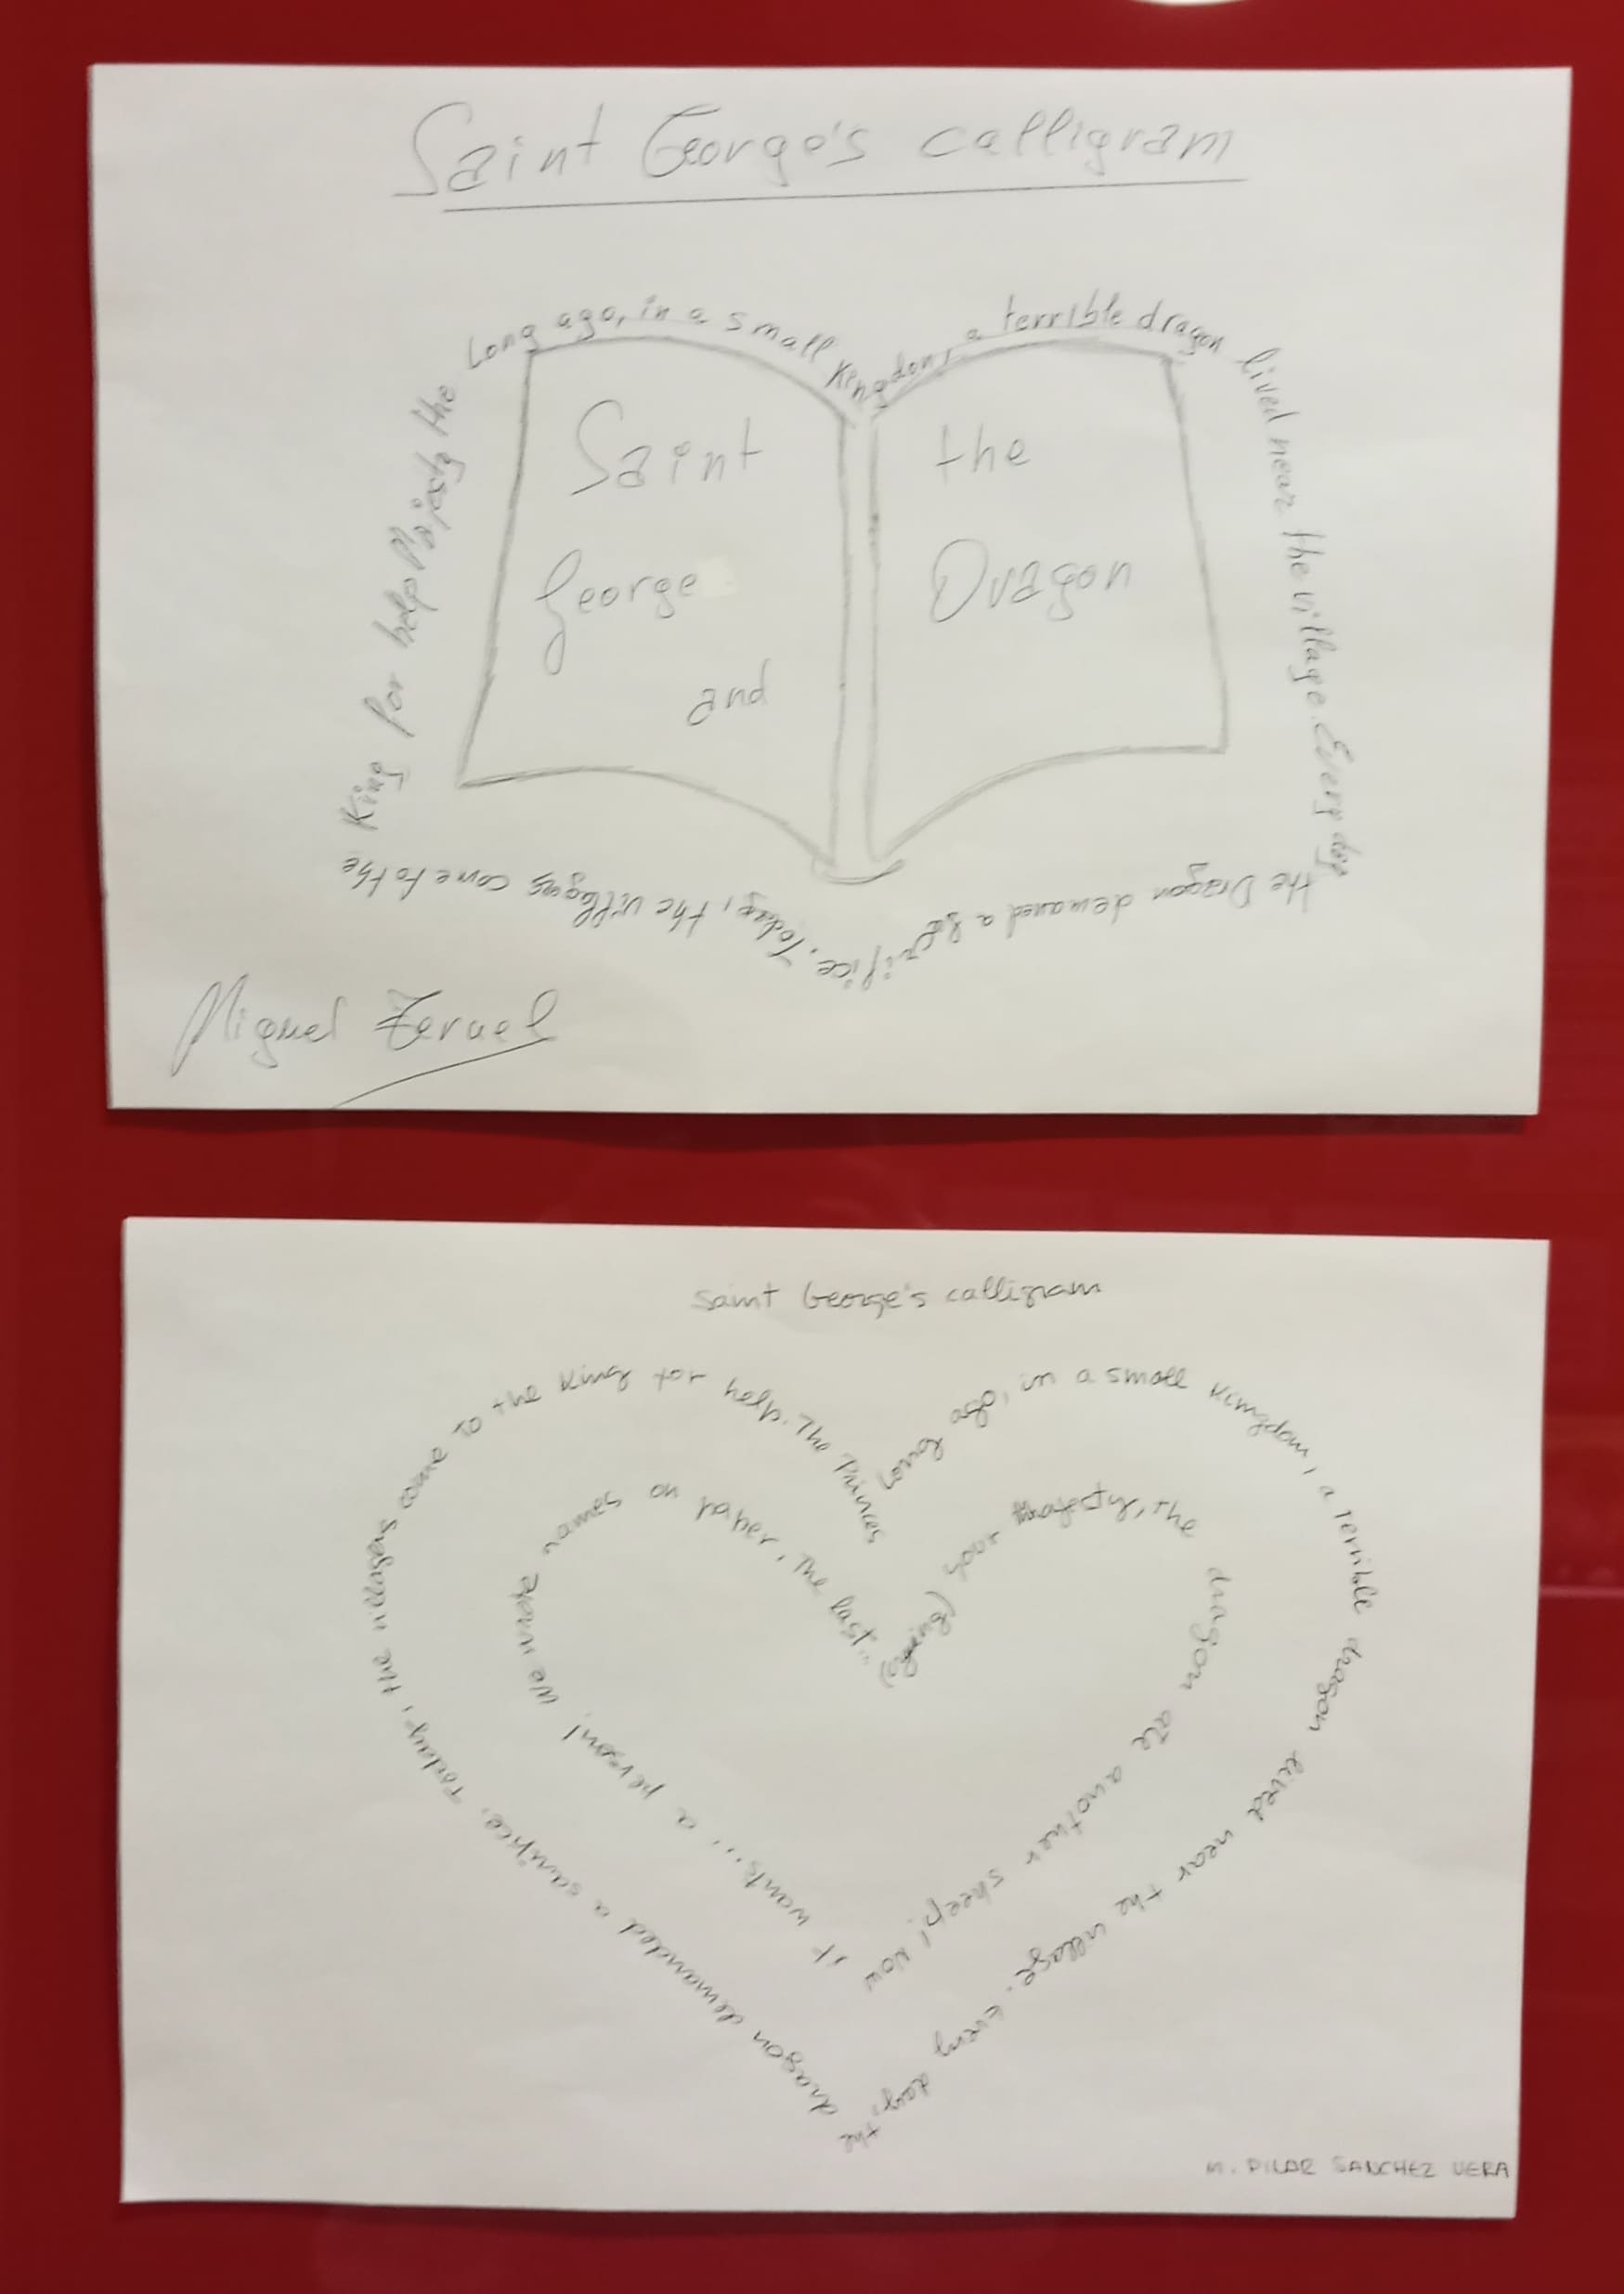 Saint George's calligram
Long ago, in a small Kingdom, a terrible dragon
lived near the village. Every day
the Dragon demaned a sacrifice. Today, the villagers come to the
King for help Majesty the
Saint
George
and
the
Dragon
Miguel
Saint George's calligram
Long ago, in a small kingdom, a terrible dragon lived near the village. Every day, the
dragon demanded a sacrifice. Today, the villagers come to the King for help. The Princes
(going) your majesty, the dragon ate another sheep! Now
it wants... a person! We wrote names on paper. The last...
M. PILAR SANCHEZ VERA